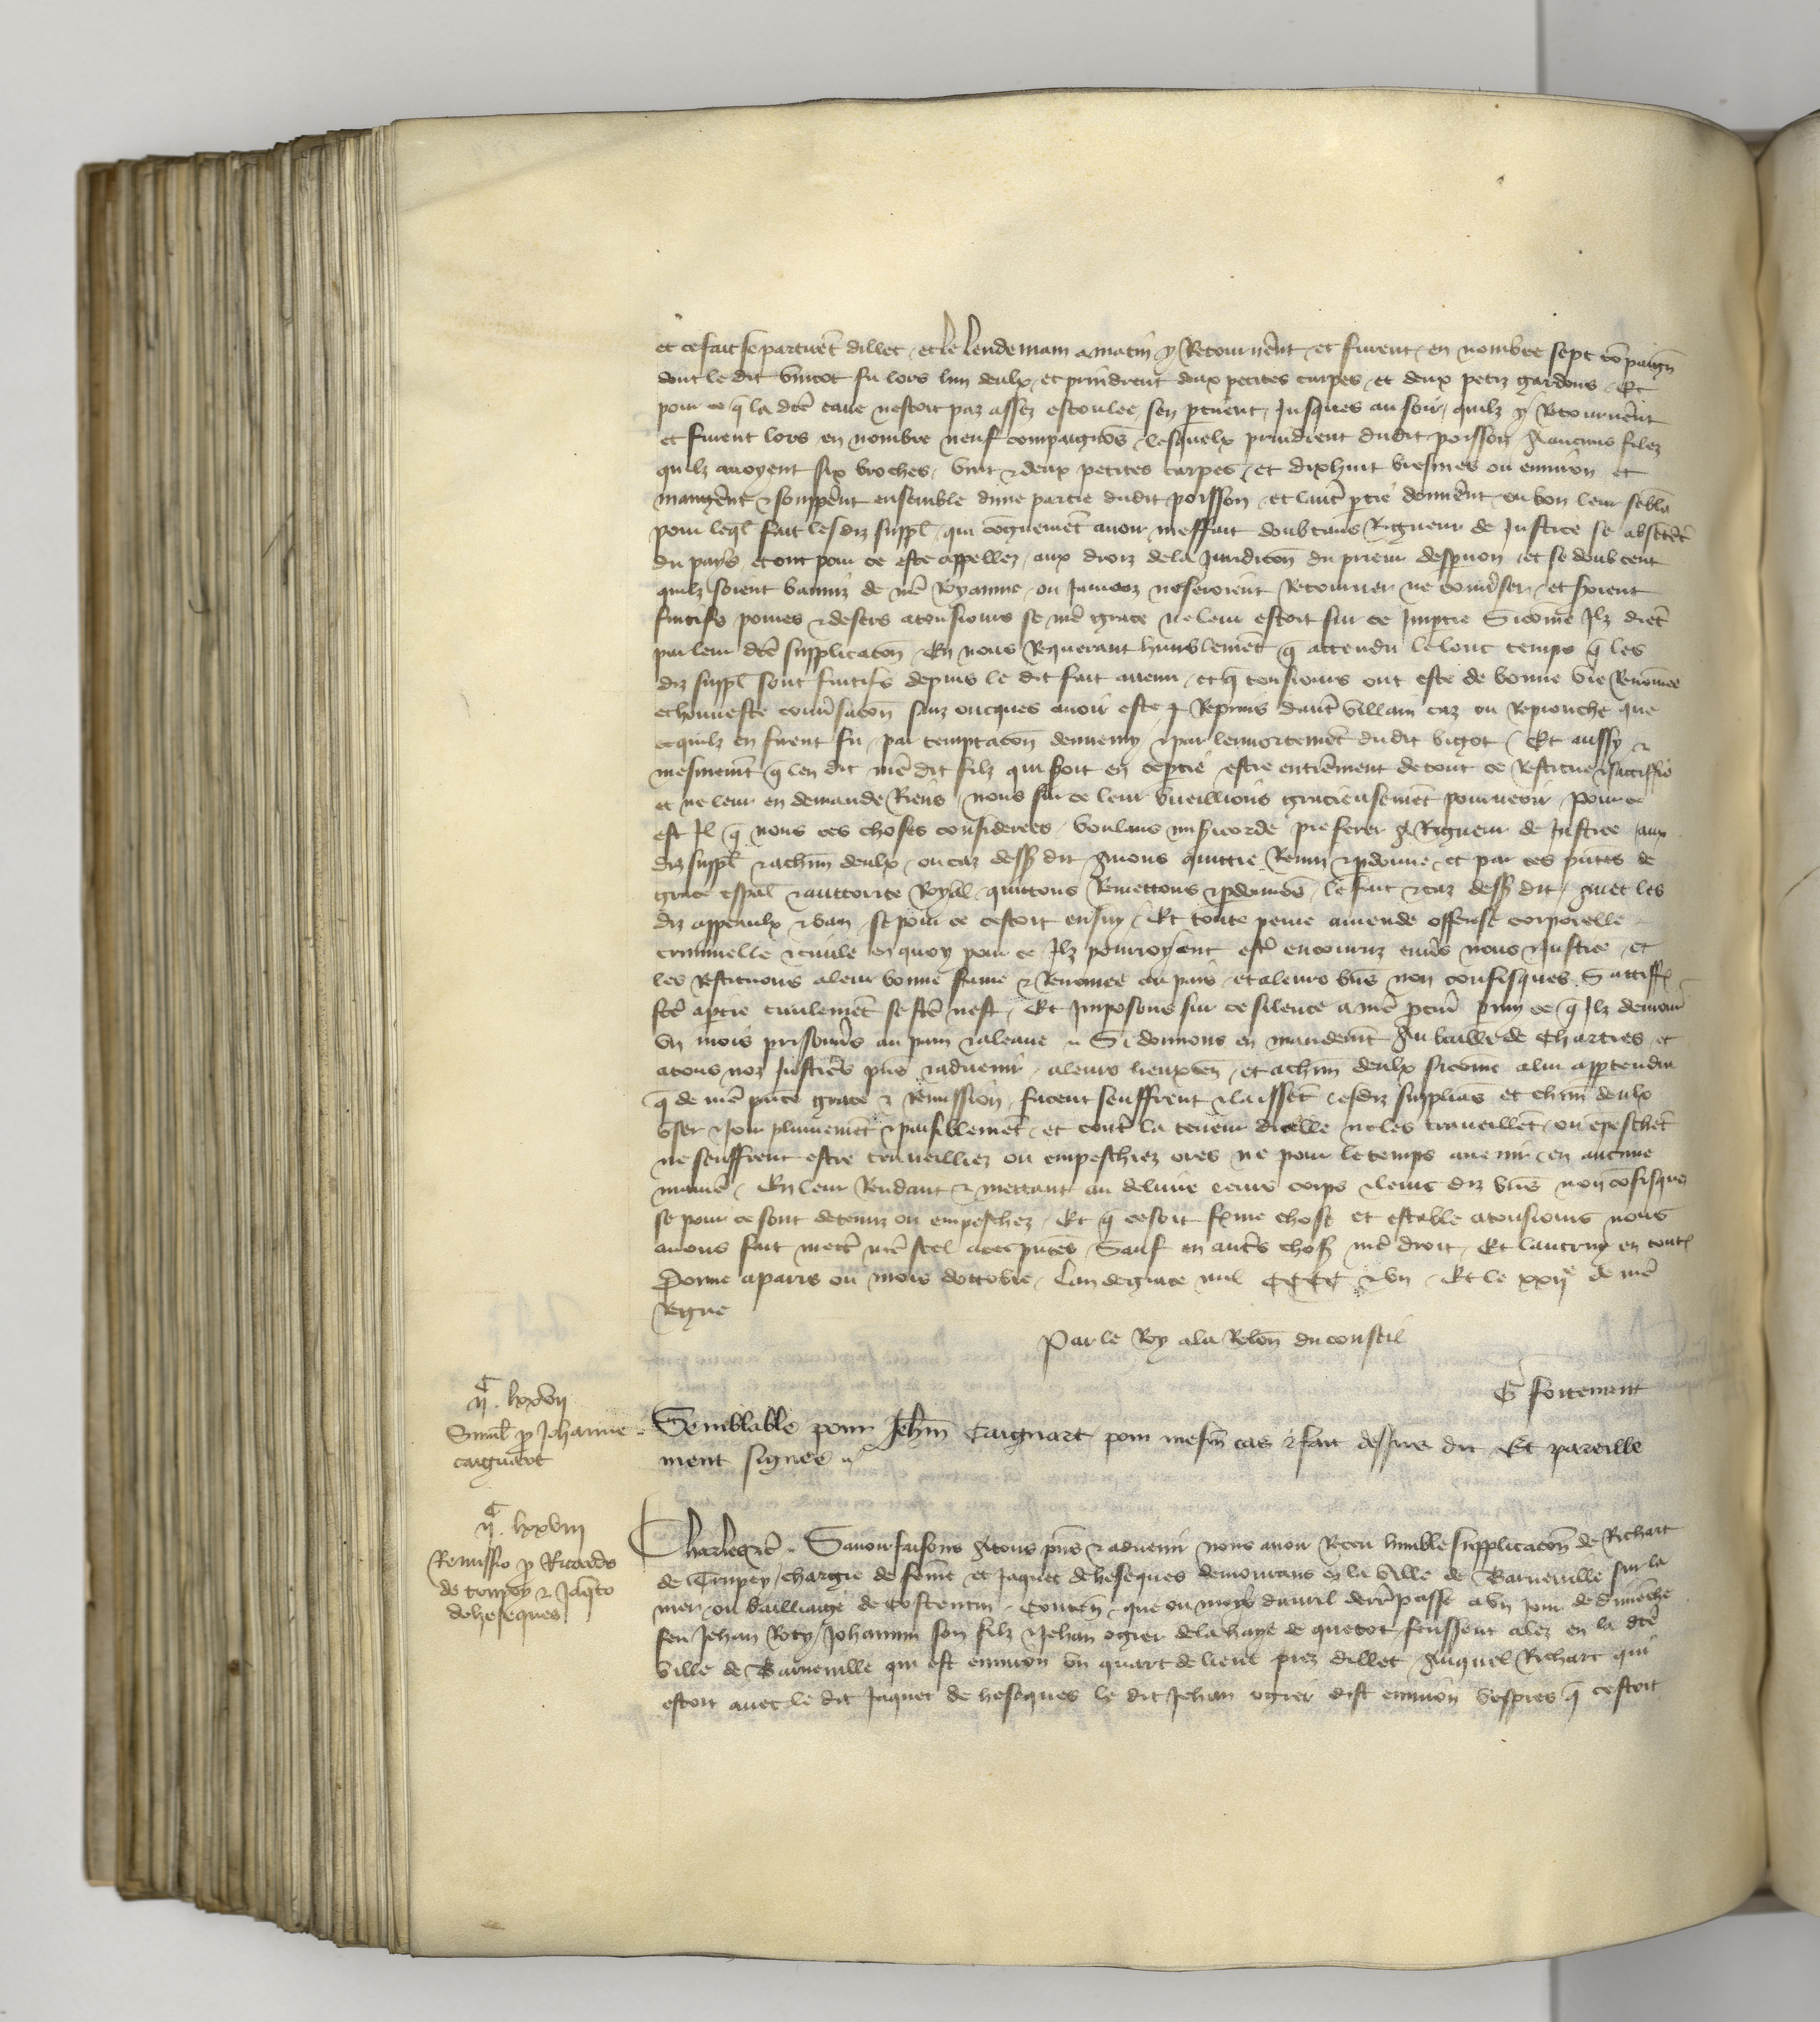 et ce fait se partirēt dillec et le lendemain a matin y Retournerēt et furent en nombre sept cōpaigñ
dont le dit bigot fu lors lun deulx et prindrent deux petites carpes et deux petiz gardons Et
pour ce q̄ la dcē eaue nestoit pas assez escoulee sen ptirent Jusques au soir quilz y Retournerēt
et furent lors en nombre neuf compaignōs lesquelx prindrent dudit poisson A aucuns filez
quilz auoyent six broches vint & deux petites carpes et dixhuit bresmes ou enuiron et
mangerēt & soupperēt ensemble dune partie dudit poisson et lautr̄ ptie donnerēt ou bon leur sēbla
pour leql̄ fait lesdiz suppl̄ doubtans Rigueur de Justice se absētēt
du pays et ont pour ce este appellez aux droiz de la Juridicōn du prieur et se doubtent
quilz soient banniz de nr̄e Royaume ou Jamaiz noseroient Retourner ne conuerser et soient
fuitifs poures & desers a tousiours se nr̄e grace ne leur estoit sur ce Impartie Si cōme Jlz diēt
par leur dcē supplicacōn En nous Requerant humblemēt q̄ attendu le lonc temps q̄ les
diz suppl̄ sont fuitifs depuis le dit fait auenu et q̄ tousiours ont este de bonne vie Renōmee
et honneste conuersacōn sanz oncques auoir este Reprins dautr̄ villain caz ou Reprouche que
ce quilz en firent fu par temptacōn dennemy & par lennortemēt du dit bigot Et aussy
mesmemēt q̄ len dit nr̄e dit filz qui soit en ceptie estre entieremēt de tout ce Restitue & sattiffie
et ne leur en demande Riens nous sur ce leur vueillions gracieusemēt pourueoir Pour ce
est Jl q̄ nous ces choses considerees voulans misericorde preferer A Rigueur de Justice aux
diz suppl̄ & a chūn deulx ou caz dess dit Auons quittie Remis & pdonne et par ces pn̄tes de
grace esp̄al & auctorite Royal quittons Remettons & pdonnōs le fait & caz dess dit auec les
diz appeaulx & ban se pour ce cestoit ensuy Et toute peine amende offense corporelle
criminelle & ciuile en quoy pour ce Jlz pourroyent estr̄ encouruz enuers nous & Justice et
les Restituons a leur bonne fame & Renomee ou pais et a leurs biēs non confisques Sattiffc̄
fcē a ptie ciuilemēt se fcē nest Et Imposons sur ce silence a nr̄e pcur̄ pmy ce q̄ Jlz demourr̄
vn mois prisonners au pain & a leaue Si donnons en mandemēt Au bailli de Chartres et
a tous noz Justiciers pn̄s & aduenir a leurs lieuxten̄ et a chūn deulx si cōme a lui apptendra
q̄ de nr̄e pn̄te grace & Remission facent seuffrent & laissent lesdiz supplians et chūn deulx
vser & Joir plainemēt & paisiblemēt et contr̄ la teneur dicelle ne les traueillēt ou ēpeschēt
ne seuffrent estre traueilliez ou empeschiez ores ne pour le temps auenir en aucune
maniē En leur Rendant & mettant au deliure leurs corps & leurs diz biēs non cōfisques
se pour ce sont detenuz ou empeschez Et q̄ ce soit ferme chose et estable a tousiours nous
auons fait mettr̄ nr̄e seel a ces pn̄tes Sauf en autr̄s choses nr̄e droit Et lautruy en toutes
Donne a paris ou mois doctobre Lan de grace mil CCCC & vn Et le xxijᵉ de nr̄e
Regne
Par le Roy a la Relōn du conseil
G fortement
ijᶜ lxxvii
Simil̄ p̄ Johanne
caignart
Semblable pour Jehn̄ Caignart pour mesm̄ cas & fait dessus dit Et pareille
ment signee
ijᶜ lxxviii
Remissio p̄ Ricardo
de trupey & Jaq̄to
deheseques
Charles &c̄ Sauoir faisons A tous pn̄s & aduenir nous auoir Receu lumble supplicacōn de Richart
de Trupey chargie de fem̄e et Jaquet deheseques demourans en la ville de Barneuille sur la
mer ou bailliaige de Costentin Conten̄ que ou moys dauril derr̄ passe a vn Jour de dimēche
feu Jehan Roty Johannin son filz & Jehan ogier de la haye de quetot feussent alez en la dcē
ville de Barneuille qui est enuiron vn quart de lieue prez dillec Auquel Richart qui
estoit auec le dit Jaquet de heseques le dit Jehan ogier dist enuiron vespres q̄ cestoit